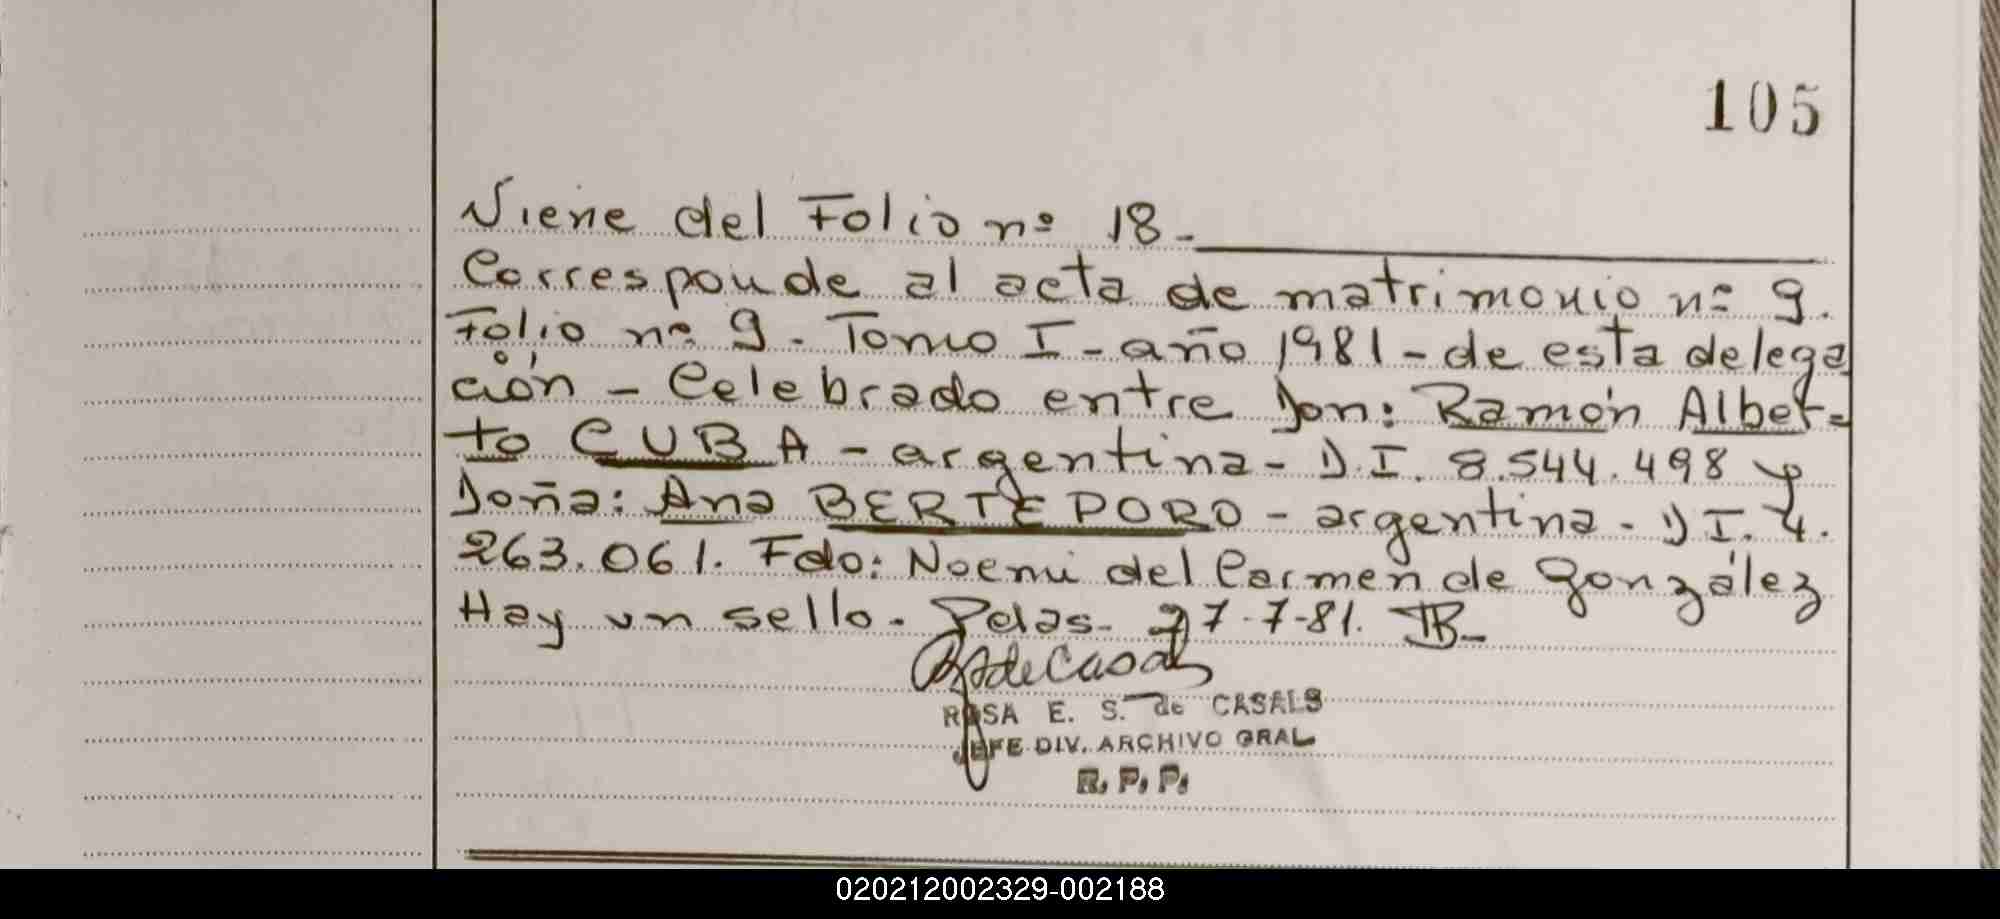 105
Viene del Folio nº 18.-
Corresponde al acta de matrimonio nº 9.
Folio nº 9. Tomo I - año 1981 - de esta delega
ción - Celebrado entre Don: Ramón Alber-
to CUBA - argentina - D.I. 8.544.498 y
Doña: Ana BERTEPORO - argentina - D I. 4.
263.061. Fdo: Noemi del Carmen de González
Hay un sello. Pdas. 27-7-81.
RdeCasals
ROSA E. S. de CASALS
JEFE DIV. ARCHIVO GRAL
R. P. P.
020212002329-002188